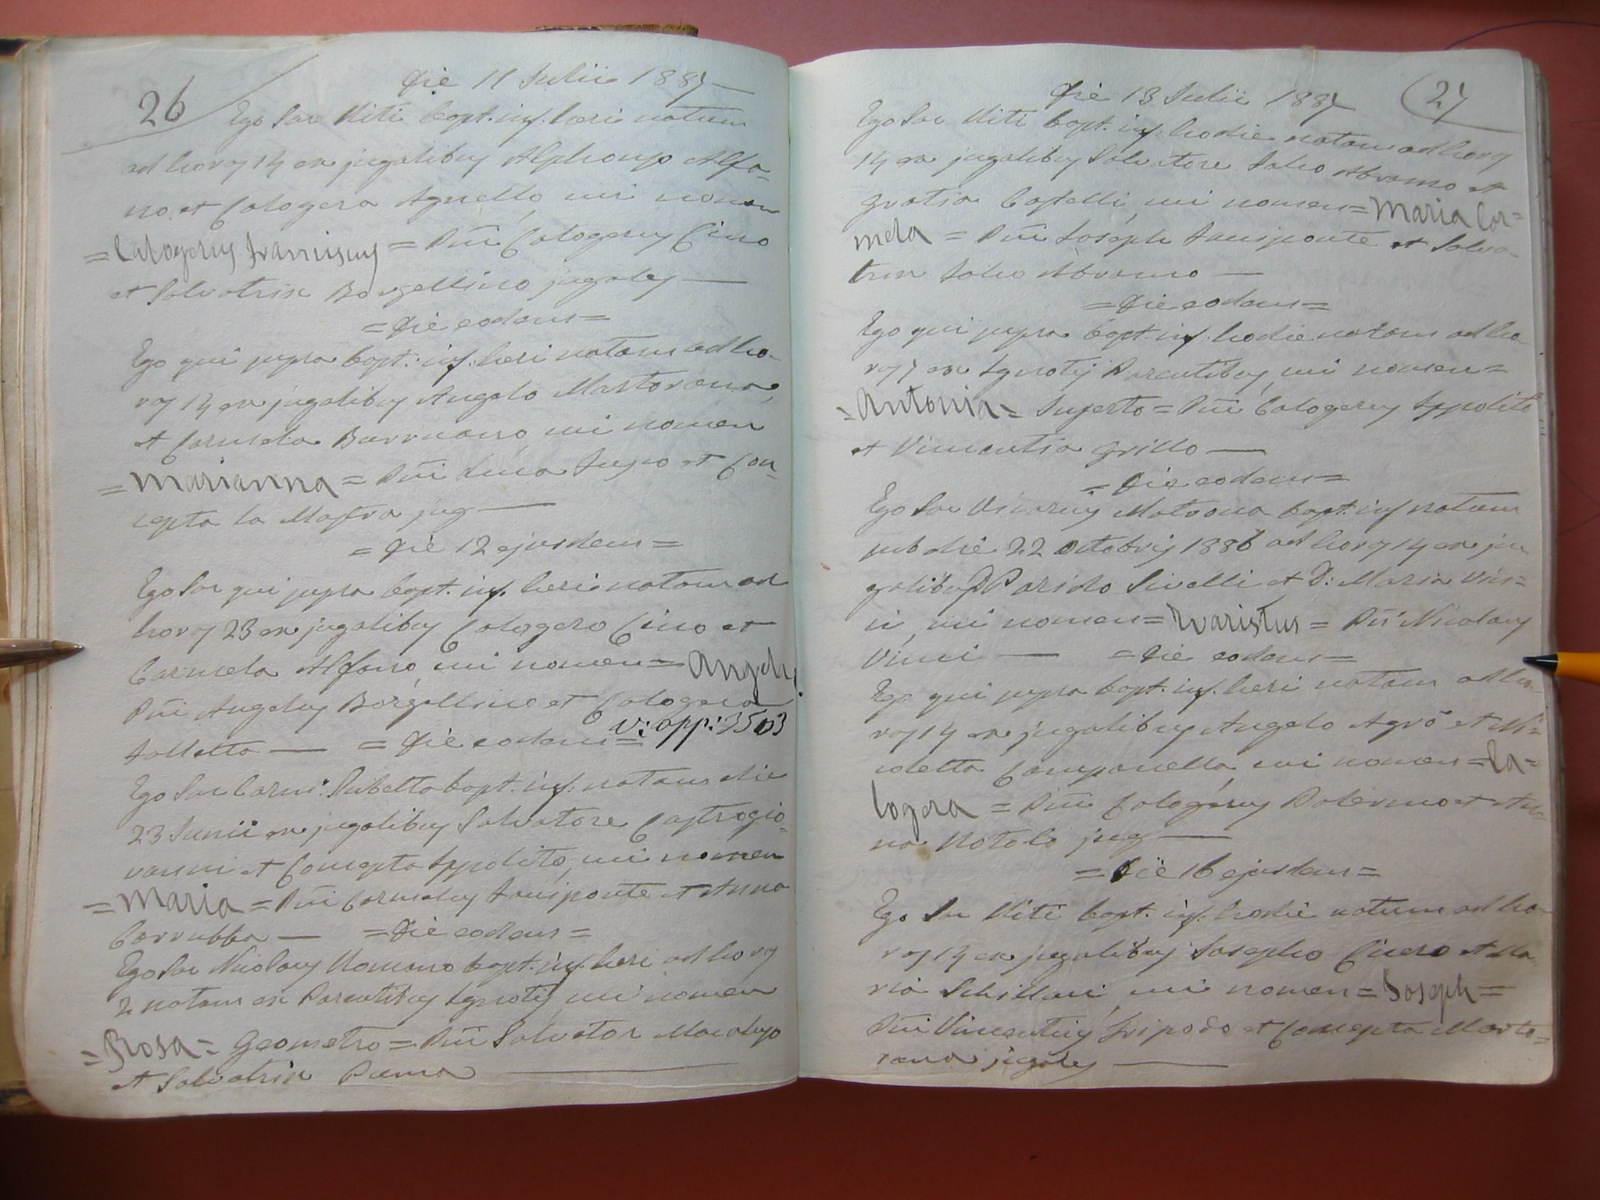 26
Die 11 Julii 1887
Ego Sac Viti bapt. inf. heri natum
ad horas 14 ex jugalibus Alphonso Alfa-
no, et Calogera Agnello, cui nomen
= Calogerus Franciscus = Pni Calogerus Cino
et Salvatrix Borgellino jugales
= Die eodem =
Ego qui supra bapt. inf. heri natam ad ho-
ras 14 ex jugalibus Angelo Martorana,
et Carmela Barruano, cui nomen
= Marianna = Pni Luca et Con-
cepta la Mastra jug
= Die 12 ejusdem =
Ego Sac qui supra bapt. inf. heri natam ad
horas 23 ex jugalibus Calogero Cino et
Carmela Alfano, cui nomen = Angela
Pni Angelus Borgellino et Calogera
Falletta = Die eodem = v: app: 3503
Ego Sac Carm: bapt. inf. natam die
23 Junii ex jugalibus Salvatore Castrogio-
vanni et Concepta Ippolito, cui nomen
= Maria = Pni Carmelus Sanciponte et Anna
Carrubba = Die eodem =
Ego Sac Nicolaus Romano bapt. inf. heri ad horas
2 natam ex Parentibus Ignotis, cui nomen
= Rosa = Geometro = Pni Salvator Macaluso
et Salvatrix Piema
27
Die 13 Julii 1887
Ego Sac Viti bapt. inf. hodie natam ad horas
14 ex jugalibus Salvatore Salvo Abramo et
Gratia Castelli, cui nomen = Maria Car-
mela = Pni Joseph Sanciponte et Salva-
trix Salvo Abramo
= Die eodem =
Ego qui supra bapt. inf. hodie natam ad ho-
ras 7 ex Ignotis Parentibus, cui nomen =
= Antonia = = Pni Calogerus Ippolito
et Vincentia Grillo
= Die eodem =
Ego Sac Vicarius Matraona bapt. inf natum
sub die 22 Octobris 1886 ad horas 14 ex ju-
galibus D. Parido Sivelli et D: Maria Vin-
ci, cui nomen = Evaristus = Pni Nicolaus
Vinci = Die eodem =
Ego qui supra bapt. inf. heri natam ad ho-
ras 14 ex jugalibus Angelo Agrò et Ni-
coletta Campanella, cui nomen = Ca-
logera = Pni Calogerus Palermo et An-
na Notolo jug
= Die 16 ejusdem =
Ego Sac Viti bapt. inf. hodie natum ad ho-
ras 14 ex jugalibus Josepho Cicero et Ma-
ria Schillaci, cui nomen = Joseph =
Pni Vincentius Tripodo et Concepta Marto-
rana jugales